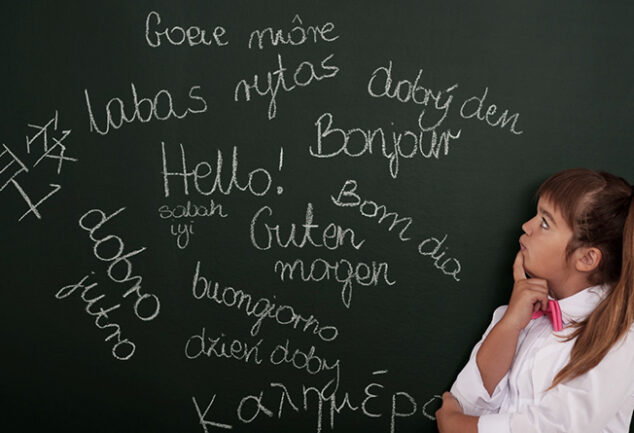 Goeie môre
labas rytas
dobrý den
Bonjour
Hello!
sabah
iyi
Bom dia
Guten
morgen
dobro
jutro
buongiorno
dzień dobry
καλημέρα